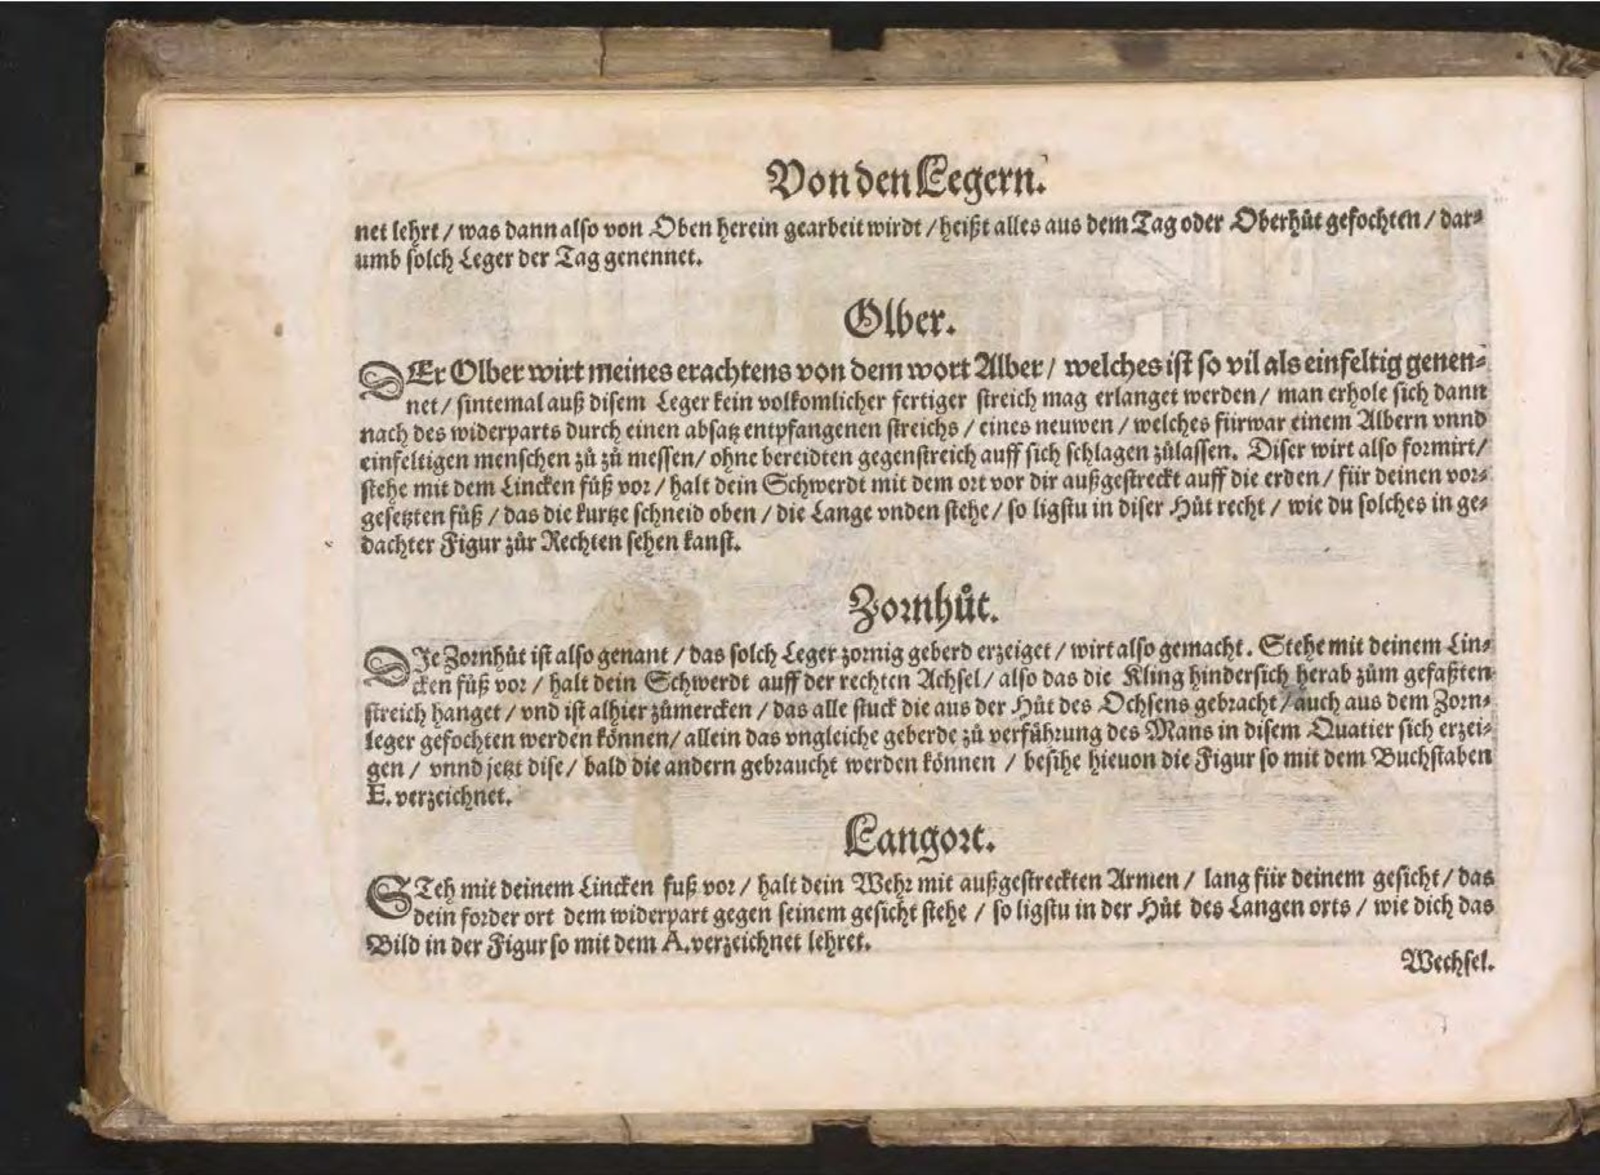 Von den Legern.
net lehrt / was dann also von Oben herein gearbeit wirdt / heißt alles aus dem Tag oder Oberhůt gefochten / dar⸗
umb solch Leger der Tag genennet.
Olber.
DEr Olber wirt meines erachtens von dem wort Alber / welches ist so vil als einfeltig genen⸗
net / sintemal auß disem Leger kein volkomlicher fertiger streich mag erlanget werden / man erhole sich dann
nach des widerparts durch einen absatz entpfangenen streichs / eines neuwen / welches fürwar einem Albern vnnd
einfeltigen menschen zů zů messen / ohne bereidten gegenstreich auff sich schlagen zůlassen. Diser wirt also formirt /
stehe mit dem Lincken fůß vor / halt dein Schwerdt mit dem ort vor dir außgestreckt auff die erden / für deinen vor⸗
gesetzten fůß / das die kurtze schneid oben / die Lange vnden stehe / so ligstu in diser Hůt recht / wie du solches in ge⸗
dachter Figur zůr Rechten sehen kanst.
Zornhůt.
DJe Zornhůt ist also genant / das solch Leger zornig geberd erzeiget / wirt also gemacht. Stehe mit deinem Lin⸗
cken fůß vor / halt dein Schwerdt auff der rechten Achsel / also das die Kling hindersich herab zům gefaßten
streich hanget / vnd ist alhier zůmercken / das alle stuck die aus der Hůt des Ochsens gebracht / auch aus dem Zorn⸗
leger gefochten werden können / allein das vngleiche geberde zů verführung des Mans in disem Quatier sich erzei⸗
gen / vnnd jetzt dise / bald die andern gebraucht werden können / besihe hieuon die Figur so mit dem Buchstaben
E. verzeichnet.
Langort.
STeh mit deinem Lincken fuß vor / halt dein Wehr mit außgestreckten Armen / lang für deinem gesicht / das
dein forder ort dem widerpart gegen seinem gesicht stehe / so ligstu in der Hůt des Langen orts / wie dich das
Bild in der Figur so mit dem A. verzeichnet lehret.
Wechsel.